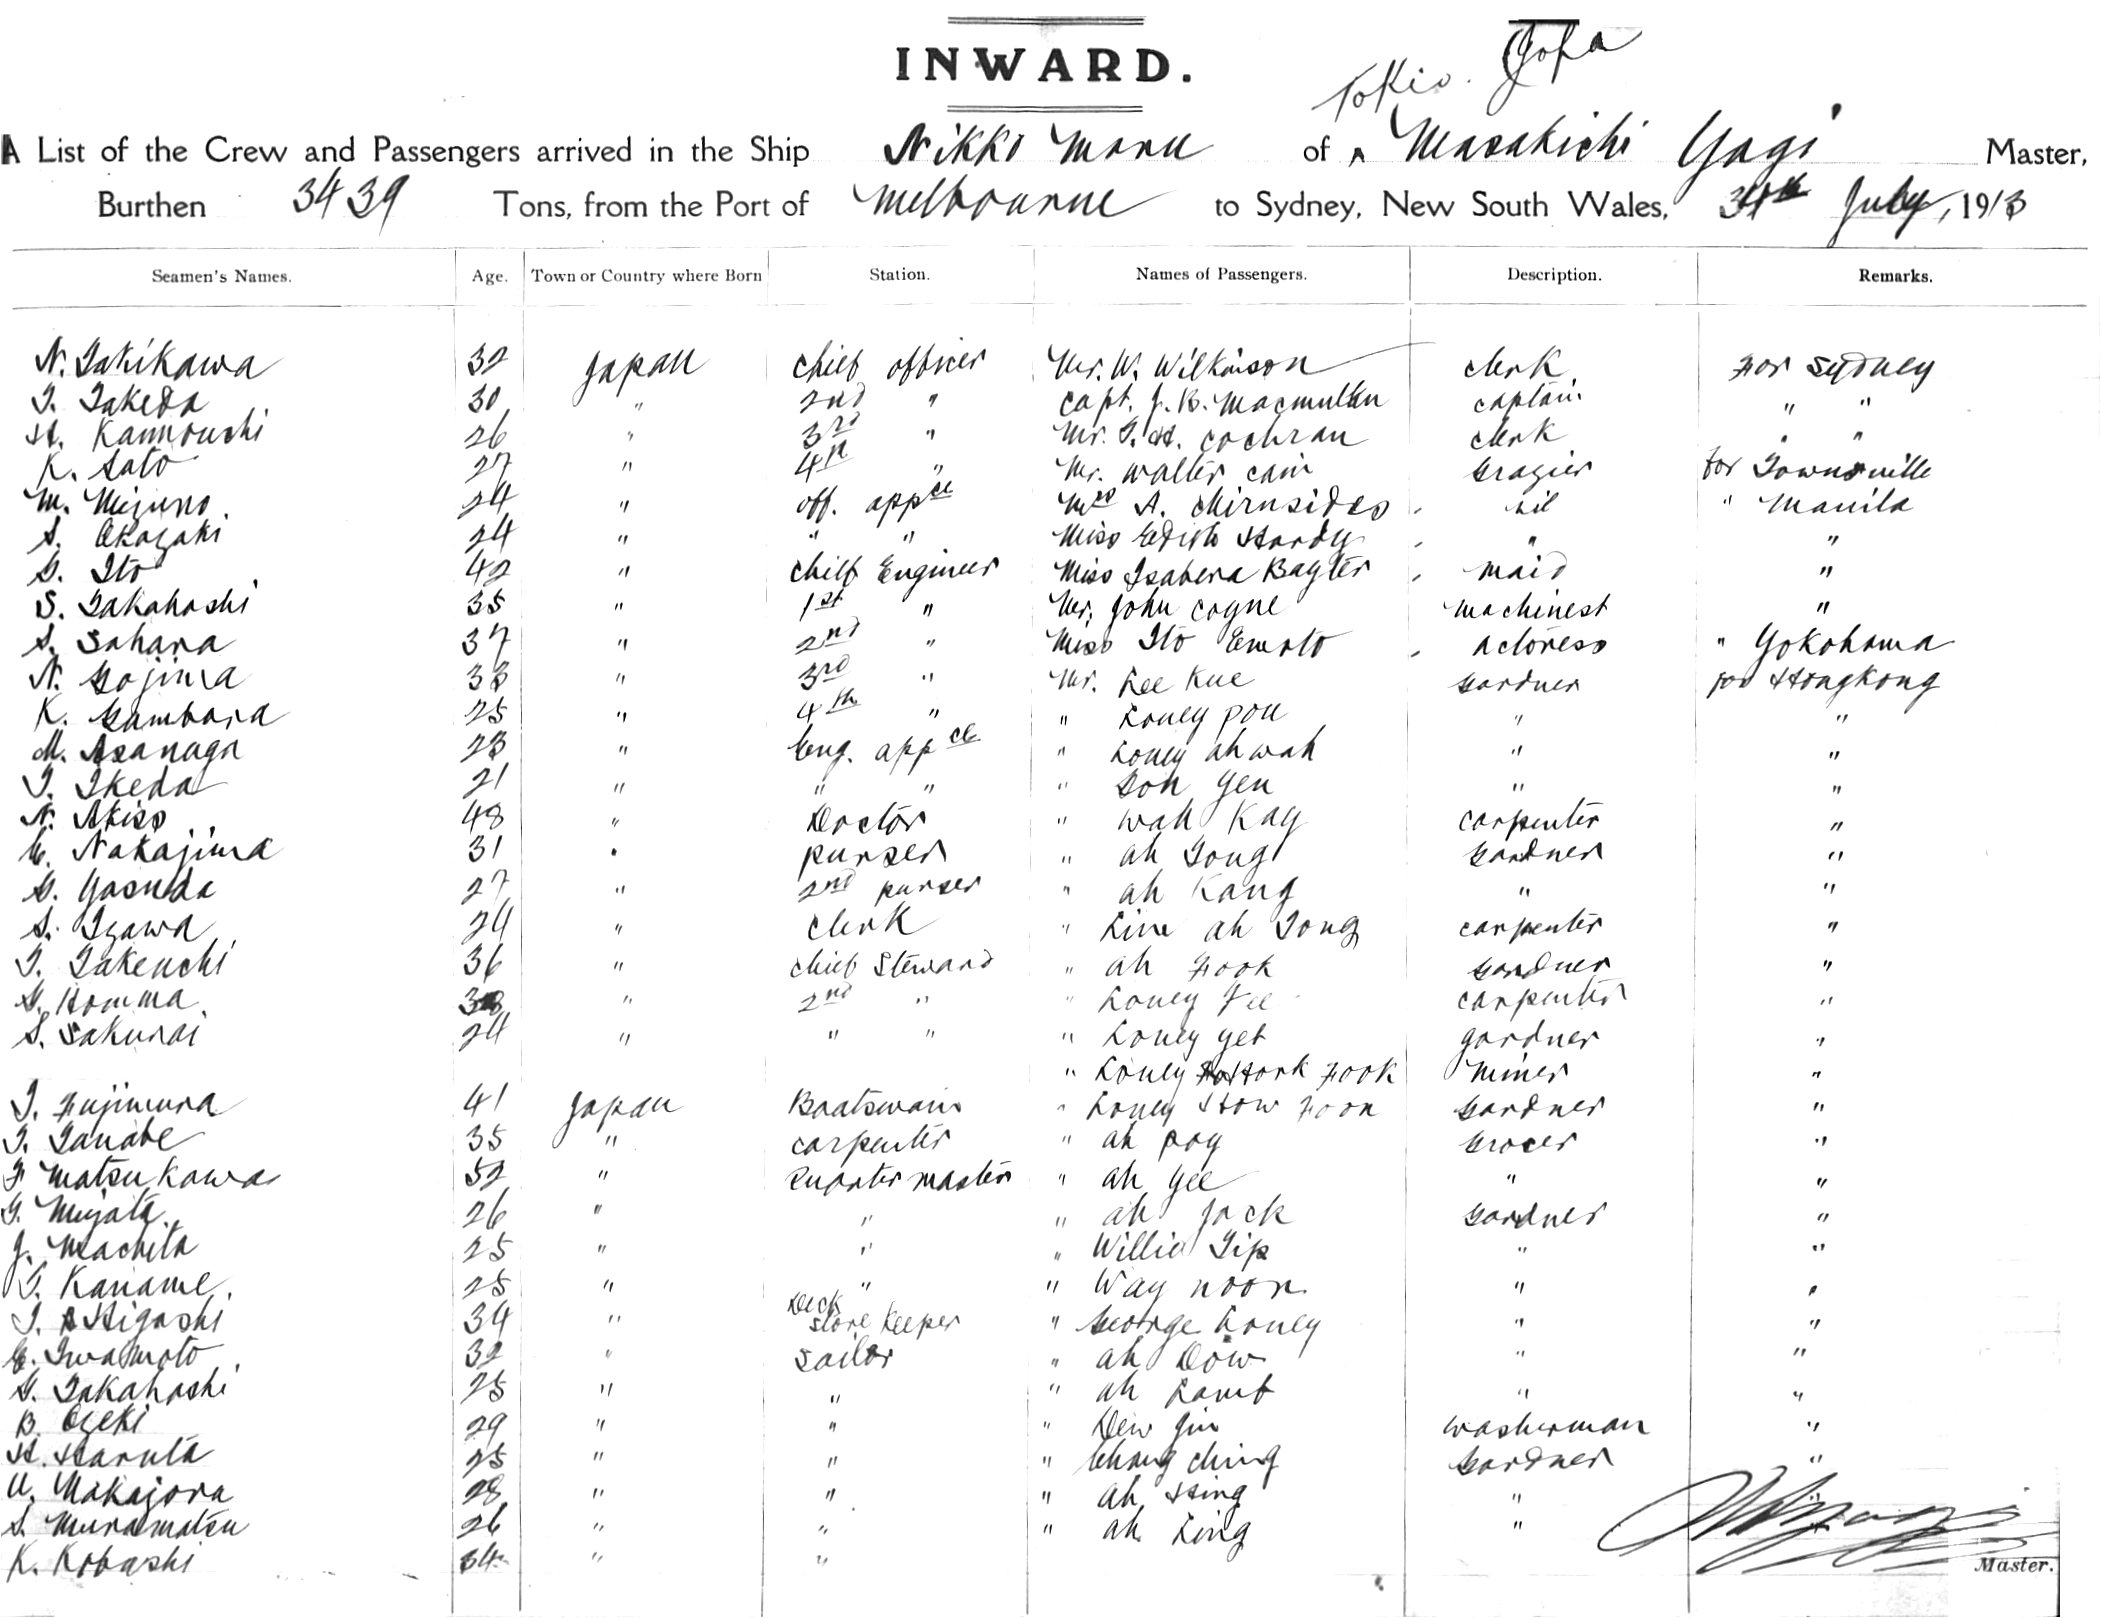 INWARD.
Tokio.
A List of the Crew and Passengers arrived in the Ship Nikko Maru of Masakichi Yagi Master,
Burthen 3439 Tons, from the Port of Melbourne to Sydney, New South Wales, July, 1913
Seamen's Names. Age. Town or Country where Born Station. Names of Passengers. Description. Remarks.
N. Takikawa 32 Japan Chief officer Mr. W. Wilkinson clerk For Sydney
T. Takeda 30 " 2nd " Capt. J. B. Macmullan captain. " "
H. 26 " 3rd " Mr. T. H. Cochran clerk " "
K. Sato 27 " 4th " Mr. Walter Cain Grazier for Townsville
M. Mizuno 24 " off. appce Mrs A. Chirnsides nil " Manila
S. Okazaki 24 " " " Miss Edith Hardy " "
G. Ito 42 " Chief Engineer Miss Isabera Bayter maid "
S. Takahashi 35 " 1st " Mr. John Coyne machinest "
S. Sahara 37 " 2nd " Miss Ito Emoto actoress " Yokohama
N. Gojima 33 " 3rd " Mr. Lee Kue Gardner for Hongkong
K. Gambara 25 " 4th " " Loney pou " "
M. Asanaga 23 " Eng. appce " Loney ah wah " "
T. Ikeda 21 " " " " Gon Yen " "
N. Akiso 48 " Doctor " wah Kay carpenter "
E. Nakajima 31 " purser " ah Tong Gardner "
G. Yasuda 27 " 2nd purser " ah Kang " "
S. Izawa 24 " Clerk " Line ah Tong carpenter "
T. Takeuchi 36 " chief Steward " ah Fook Gardner "
G. Homma " 2nd " " Loney Fee carpenter "
S. Sakurai 24 " " " " Loney yet gardner "
" Loney Hork Fook miner "
T. Fujimura 41 Japan Boatswain " Loney How Foon Gardner "
T. Tanabe 35 " carpenter " ah poy Grocer "
F. Matsukawa 52 " Quarter master " ah Yee " "
G. Miyata 26 " " " ah Jack Gardner "
J. Machita 25 " " " Willie Tip " "
T. Kaname. 25 " " " Way noon " "
T. Higashi 34 " Deck store Keeper " George Loney " "
E. Iwamoto 32 " Sailor " ah Dow " "
G. Takahashi 25 " " " ah Lamb " "
B. Ozeki 29 " " " Dew Jin washerman "
H. Haruta 25 " " " Chang Ching Gardner "
U. Nakajora 28 " " " ah Hing " "
S. Muramatsu 26 " " " ah Ling "
K. Kobashi 34 " "
Master.